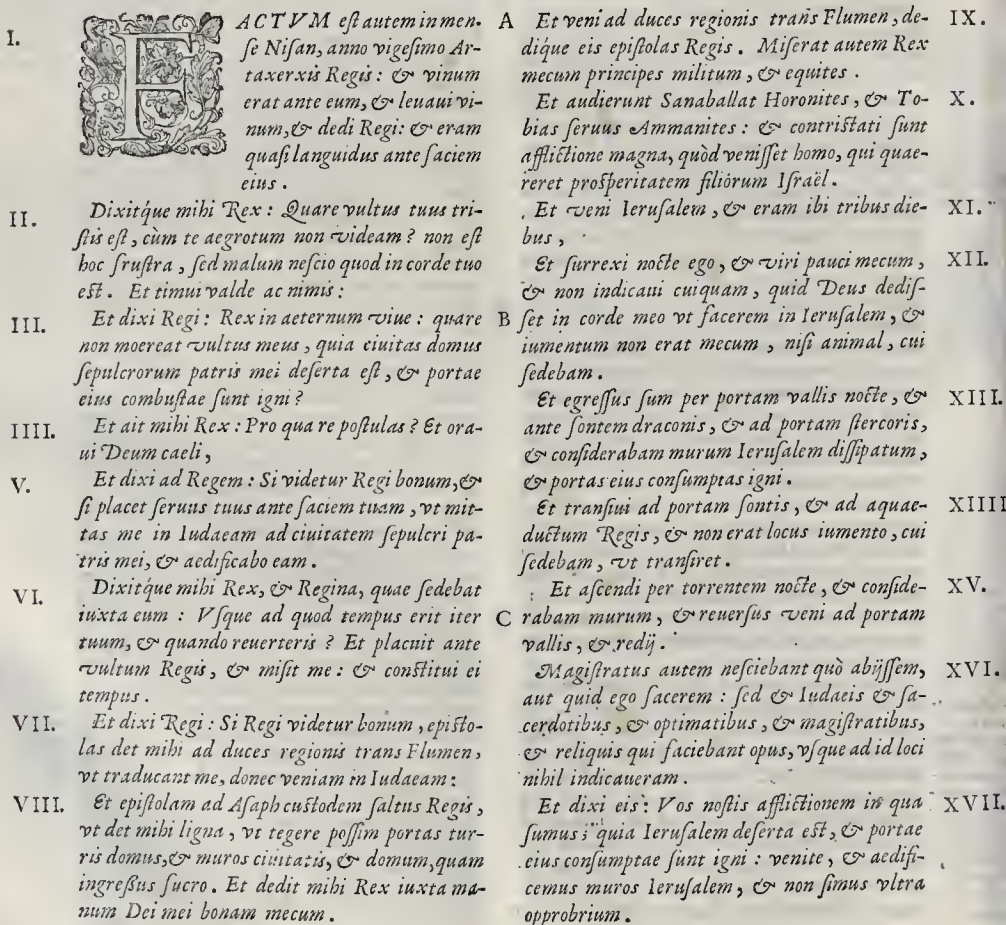 I. FACTVM eſt autem in men-
ſe Niſan, anno vigeſimo Ar-
taxerxis Regis: & vinum
erat ante eum, & leuaui vi-
num, & dedi Regi: & eram
quaſi languidus ante faciem
eius.
II. Dixitq́ue mihi Rex: Quare vultus tuus tri-
ſtis eſt, cùm te aegrotum non videam? non eſt
hoc fruſtra, ſed malum neſcio quod in corde tuo
eſt. Et timui valde ac nimis:
III. Et dixi Regi: Rex in aeternum viue: quare
non moereat vultus meus, quia ciuitas domus
ſepulcrorum patris mei deſerta eſt, & portae
eius combuſtae ſunt igni?
IIII. Et ait mihi Rex: Pro qua re poſtulas? Et ora-
ui Deum caeli,
V. Et dixi ad Regem: Si videtur Regi bonum, &
ſi placet ſeruus tuus ante faciem tuam, vt mit-
tas me in Iudaeam ad ciuitatem ſepulcri pa-
tris mei, & aedificabo eam.
VI. Dixitq́ue mihi Rex, & Regina, quae ſedebat
iuxta eum: Vſque ad quod tempus erit iter
tuum, & quando reuerteris? Et placuit ante
vultum Regis, & miſit me: & conſtitui ei
tempus.
VII. Et dixi Regi: Si Regi videtur bonum, epiſto-
las det mihi ad duces regionis trans Flumen,
vt traducant me, donec veniam in Iudaeam:
VIII. Et epiſtolam ad Aſaph cuſtodem ſaltus Regis,
vt det mihi ligna, vt tegere poſſim portas tur-
ris domus, & muros ciuitatis, & domum, quam
ingreſſus fuero. Et dedit mihi Rex iuxta ma-
num Dei mei bonam mecum.
A Et veni ad duces regionis trans Flumen, de- IX.
dique eis epiſtolas Regis. Miſerat autem Rex
mecum principes militum, & equites.
Et audierunt Sanaballat Horonites, & To- X.
bias ſeruus Ammanites: & contriſtati ſunt
afflictione magna, quòd veniſſet homo, qui quae-
reret proſperitatem filiórum Iſraël.
Et veni Ieruſalem, & eram ibi tribus die- XI.
bus,
Et ſurrexi nocte ego, & viri pauci mecum, XII.
& non indicaui cuiquam, quid Deus dediſ-
B ſet in corde meo vt facerem in Ieruſalem, &
iumentum non erat mecum, niſi animal, cui
ſedebam.
Et egreſſus ſum per portam vallis nocte, & XIII.
ante fontem draconis, & ad portam ſtercoris,
& conſiderabam murum Ieruſalem diſſipatum,
& portas eius conſumptas igni.
Et tranſiui ad portam fontis, & ad aquae- XIIII
ductum Regis, & non erat locus iumento, cui
ſedebam, vt tranſiret.
Et aſcendi per torrentem nocte, & conſide- XV.
C rabam murum, & reuerſus veni ad portam
vallis, & redij.
Magiſtratus autem neſciebant quò abijſſem, XVI.
aut quid ego facerem: ſed & Iudaeis & ſa-
cerdotibus, & optimatibus, & magiſtratibus,
& reliquis qui faciebant opus, vſque ad id loci
nihil indicaueram.
Et dixi eis: Vos noſtis afflictionem in qua XVII.
ſumus; quia Ieruſalem deſerta eſt, & portae
eius conſumptae ſunt igni: venite, & aedifi-
cemus muros Ieruſalem, & non ſimus vltra
opprobrium.